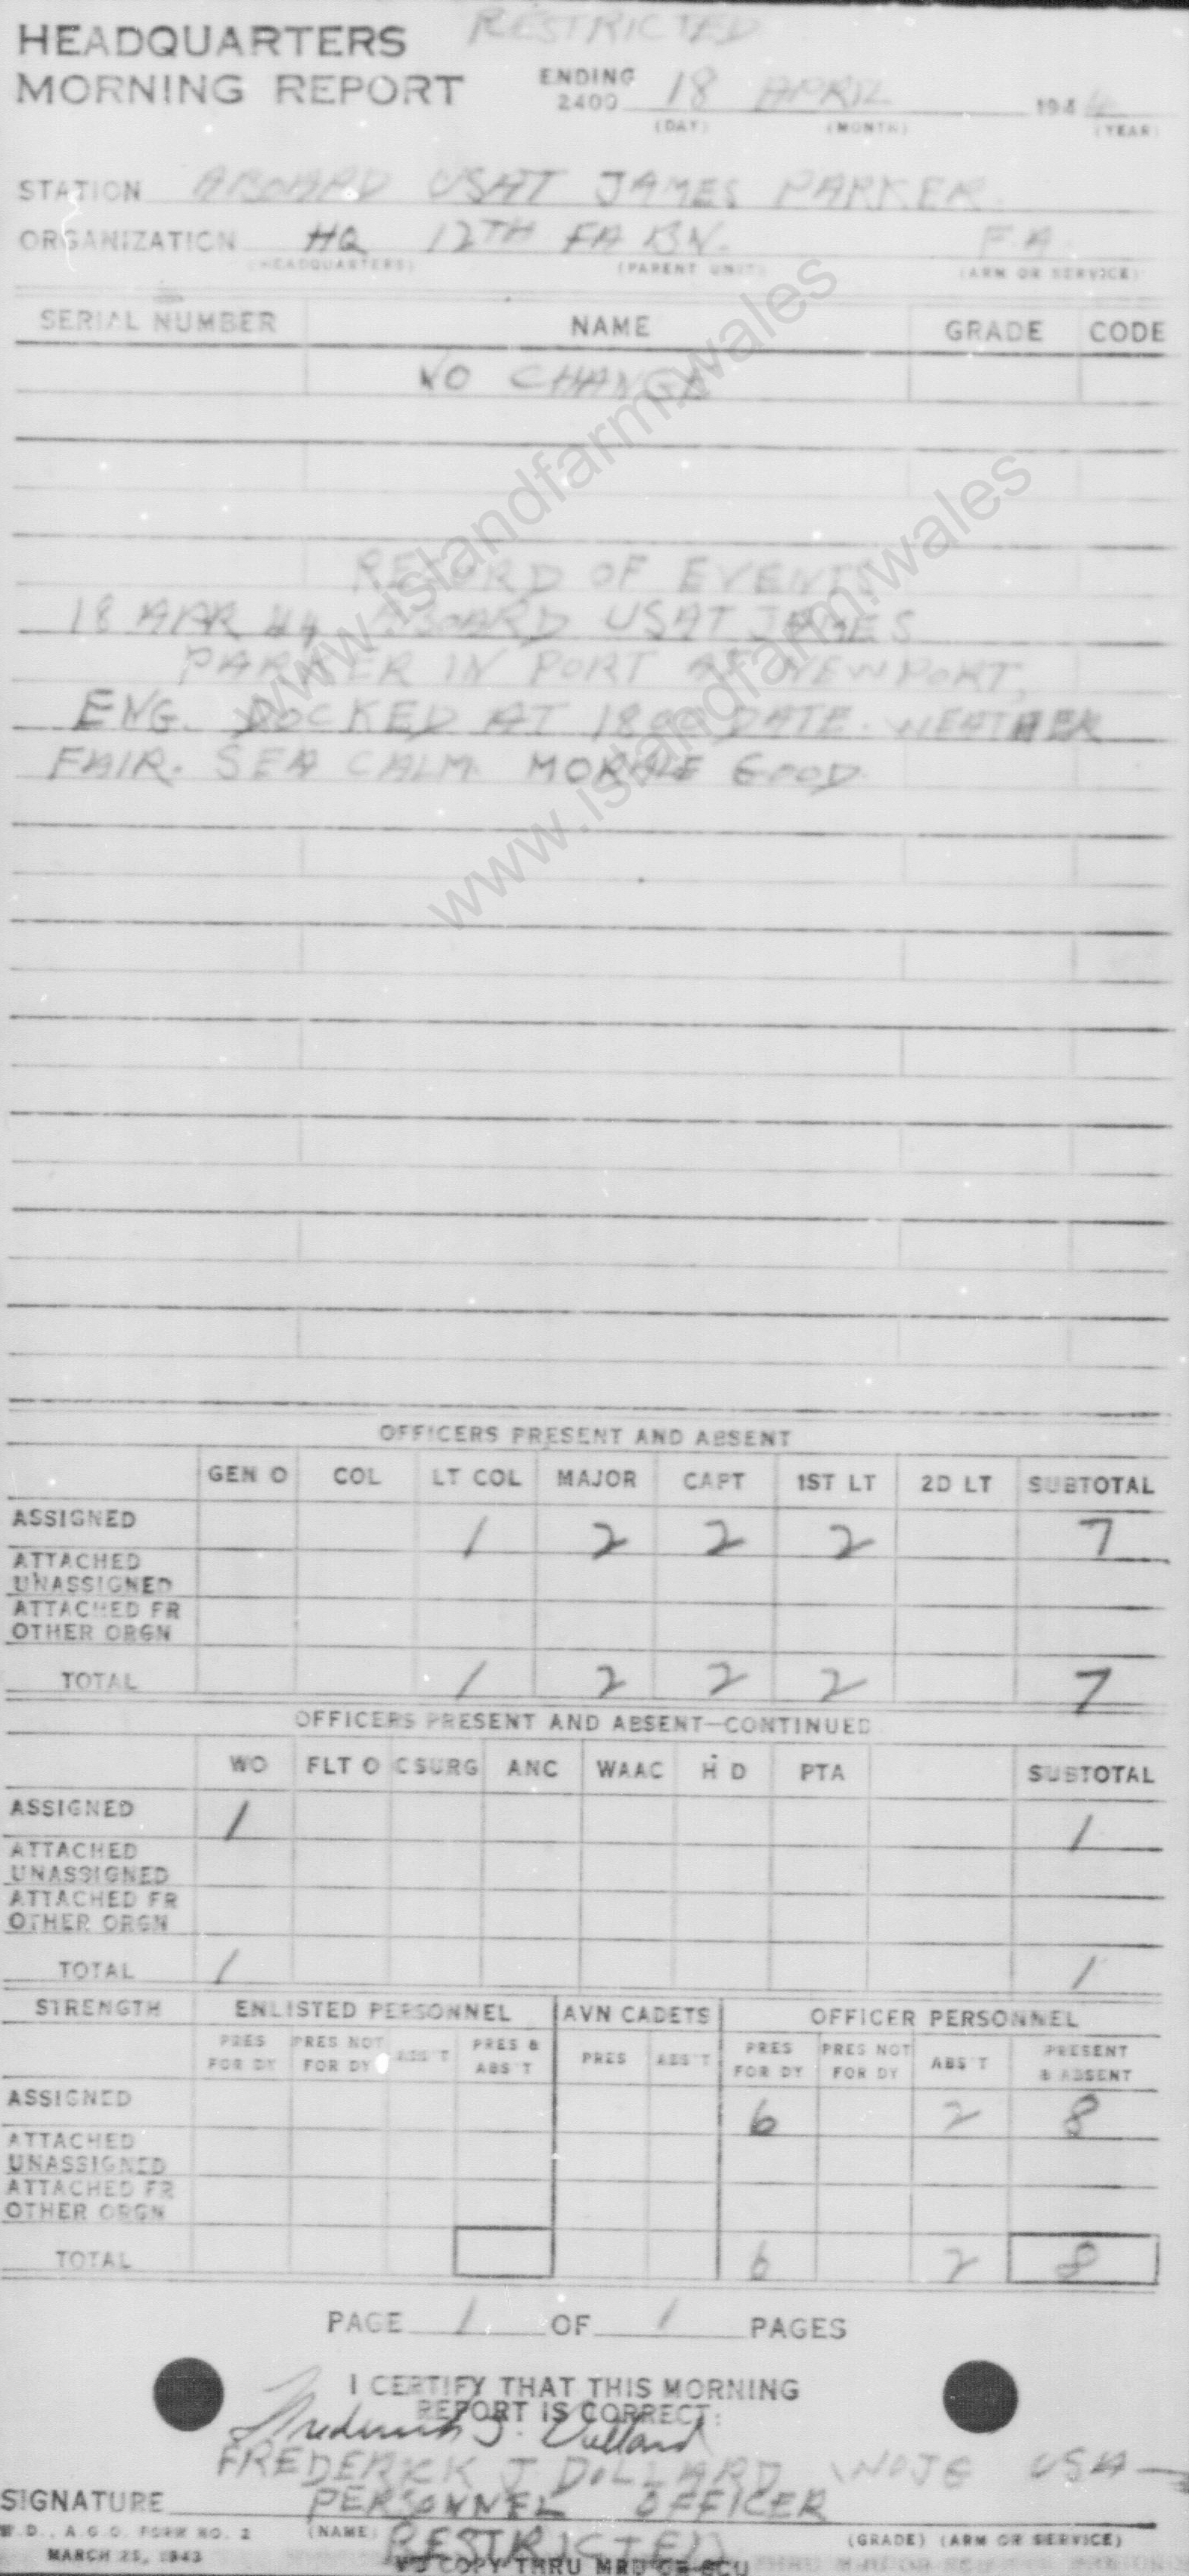 RESTRICTED
HEADQUARTERS
MORNING REPORT
ENDING 2400 18 APRIL 1944
(DAY) (MONTH) (YEAR)
STATION ABOARD USAT JAMES PARKER.
ORGANIZATION HQ 12TH FA BN. F.A.
(HEADQUARTERS) (PARENT UNIT) (ARM OR SERVICE)
SERIAL NUMBER NAME GRADE CODE
NO CHANGE
RECORD OF EVENTS
18 APR 44 ABOARD USAT JAMES
PARKER IN PORT AT NEWPORT,
ENG. DOCKED AT 1800 DATE. WEATHER
FAIR. SEA CALM. MORALE GOOD.
www.islandfarm.wales
www.islandfarm.wales
OFFICERS PRESENT AND ABSENT
GEN O COL LT COL MAJOR CAPT 1ST LT 2D LT SUBTOTAL
ASSIGNED 1 2 2 2 7
ATTACHED
UNASSIGNED
ATTACHED FR
OTHER ORGN
TOTAL 1 2 2 2 7
OFFICERS PRESENT AND ABSENT—CONTINUED
WO FLT O CSURG ANC WAAC H D PTA SUBTOTAL
ASSIGNED 1 1
ATTACHED
UNASSIGNED
ATTACHED FR
OTHER ORGN
TOTAL 1 1
STRENGTH ENLISTED PERSONNEL AVN CADETS OFFICER PERSONNEL
PRES FOR DY PRES NOT FOR DY ABS'T PRES & ABS'T PRES ABS'T PRES FOR DY PRES NOT FOR DY ABS'T PRESENT & ABSENT
ASSIGNED 6 2 8
ATTACHED
UNASSIGNED
ATTACHED FR
OTHER ORGN
TOTAL 6 2 8
PAGE 1 OF 1 PAGES
I CERTIFY THAT THIS MORNING
REPORT IS CORRECT:
Frederick J. Dollard
FREDERICK J DOLLARD WOJG USA
SIGNATURE PERSONNEL OFFICER
W.D., A.G.O. FORM NO. 2 (NAME) (GRADE) (ARM OR SERVICE)
MARCH 25, 1943 RESTRICTED
COPY THRU MRU OR SCU